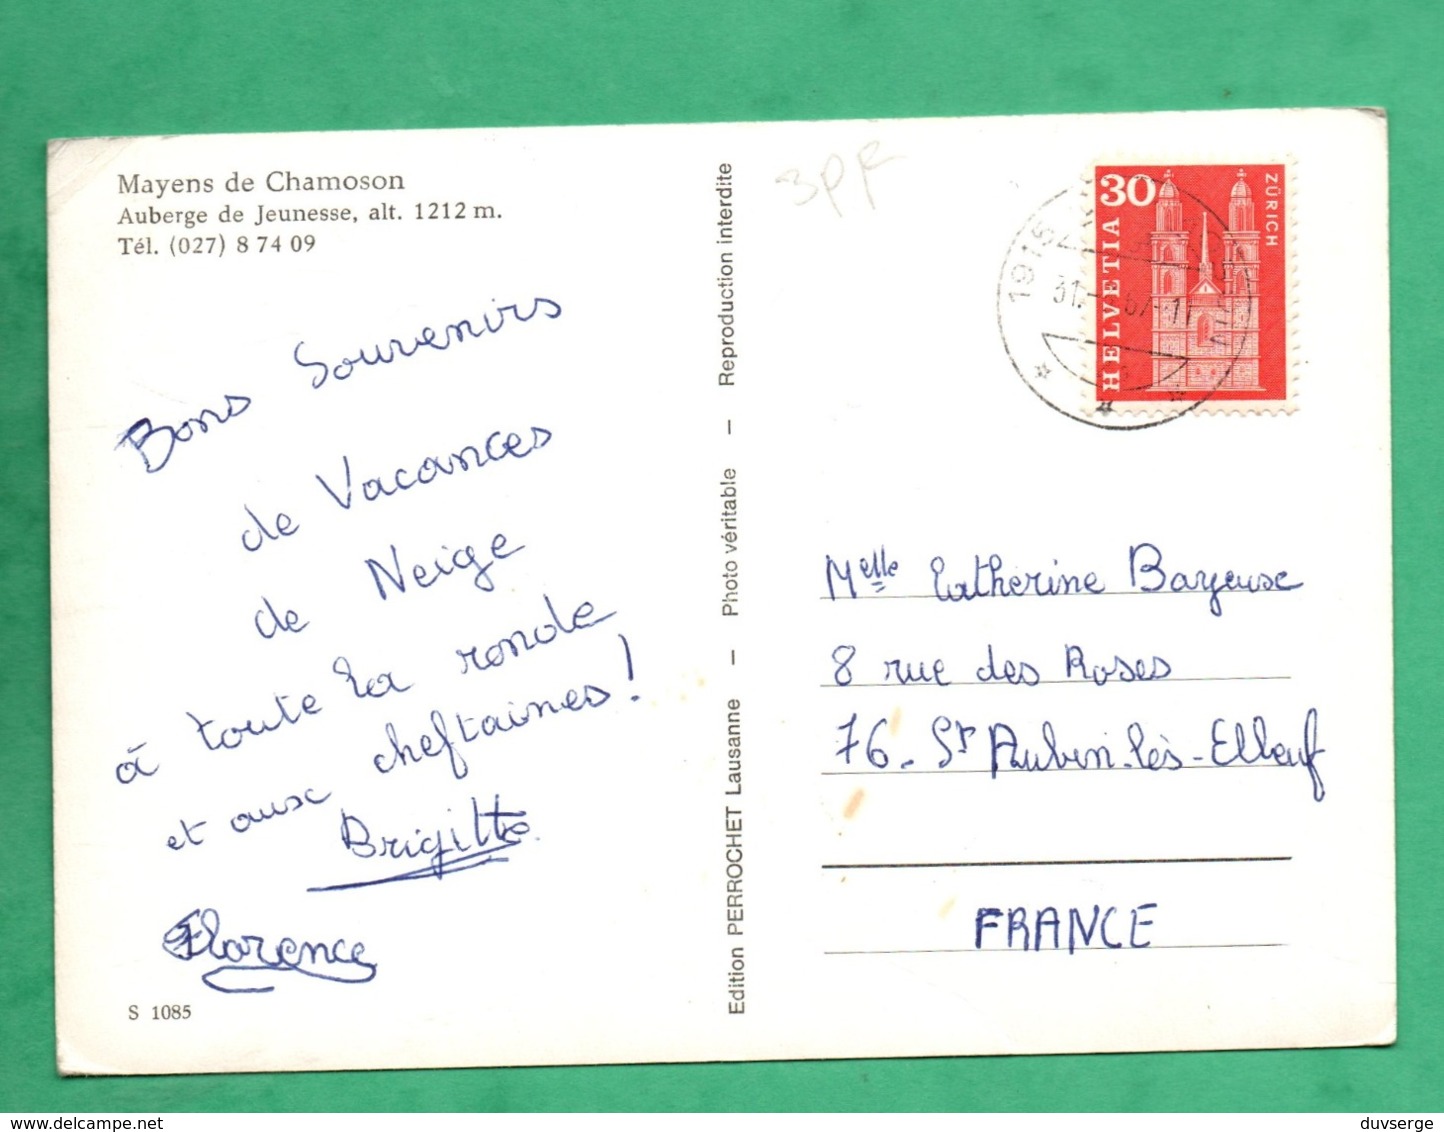 Mayens de Chamoson
Auberge de Jeunesse, alt. 1212 m.
Tél. (027) 8 74 09
Bons Souvenirs
de Vacances
de Neige
à toute la ronde
et aux cheftaines!
Brigitte
Florence
S 1085
Edition PERROCHET Lausanne — Photo véritable — Reproduction interdite
3PF
30
HELVETIA
ZÜRICH
1915
31.
67-11
Melle Catherine Bayeux
8 rue des Roses
76. St Aubin-lès-Elbeuf
FRANCE
Posted by duvserge